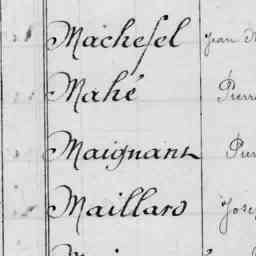 Machefel Jean
Mahé Pierre
Maignant
Maillard